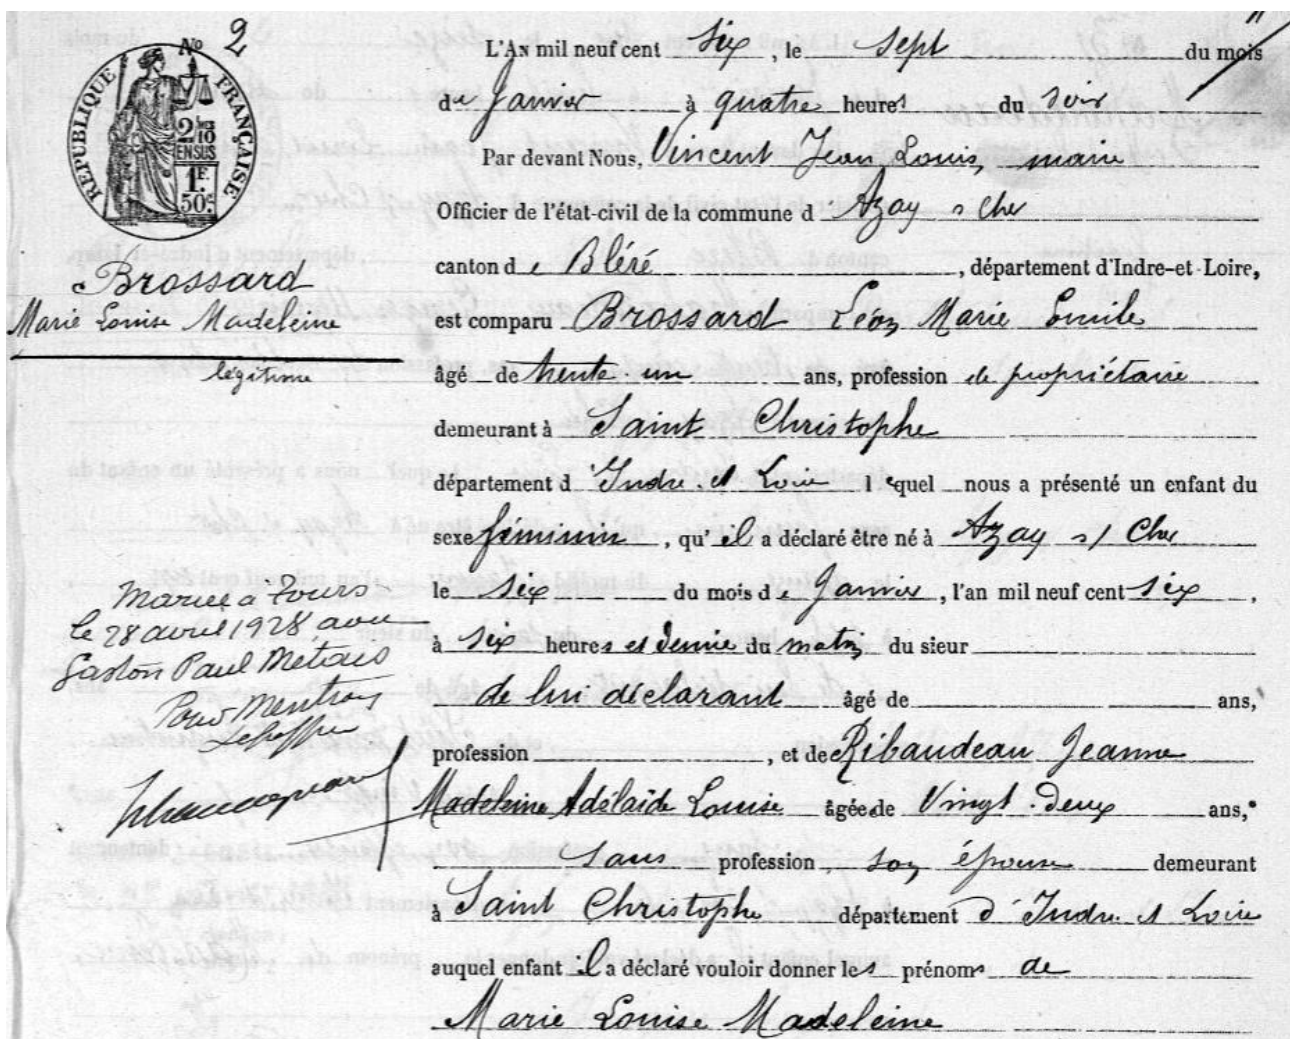 No 2
RÉPUBLIQUE FRANÇAISE
2/10 EN SUS
1F. 50c
Brossard
Marie Louise Madeleine
légitime
Mariée à Tours
le 28 avril 1928 avec
Gaston Paul Metais
Pour Mention
L'An mil neuf cent six, le sept du mois
de Janvier à quatre heures du soir
Par devant Nous, Vincent Jean Louis, maire
Officier de l'état-civil de la commune d Azay s Cher
canton de Bléré, département d'Indre-et-Loire,
est comparu Brossard Léon Marie Emile
âgé de trente un ans, profession de propriétaire
demeurant à Saint Christophe
département d Indre et Loire lequel nous a présenté un enfant du
sexe féminin, qu'il a déclaré être né à Azay s/ Cher
le six du mois de Janvier, l'an mil neuf cent six,
à six heures et demie du matin du sieur
de lui déclarant âgé de ans,
profession , et de Ribaudeau Jeanne
Madeleine Adélaïde Louise âgée de Vingt-deux ans,
sans profession, son épouse demeurant
à Saint Christophe département d'Indre et Loire
auquel enfant il a déclaré vouloir donner les prénoms de
Marie Louise Madeleine